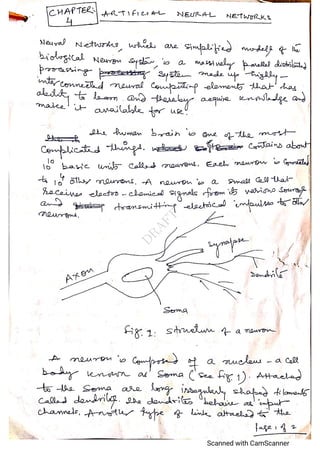 CHAPTER: 4 ARTIFICIAL NEURAL NETWORKS
Neural Networks, which are simplified models of the
biological Neuron System, is a massively parallel distributed
processing processing system made up highly-
interconnected neural computing elements that has
ability to learn and thereby acquire knowledge and
make it available for use.
The human brain is one of the most
Complicated things. Contains about
10^10 basic units called neurons. Each neuron is connected
to 10^4 other neurons. A neuron is a small cell that
receives electro-chemical signals from its various sources
and transmitting electrical impulses to other
neurons.
DRAFT
Synapse
AXON
Dendrite
Soma
Fig. 1: Structure of a neuron
A neuron is composed of a nucleus - a cell
body known as Soma (see fig 1). Attached
to the Soma are long irregularly shaped filaments
called dendrites. The dendrites behave as input
channels. Another type of link attached to the
Page 1 of 2
Scanned with CamScanner